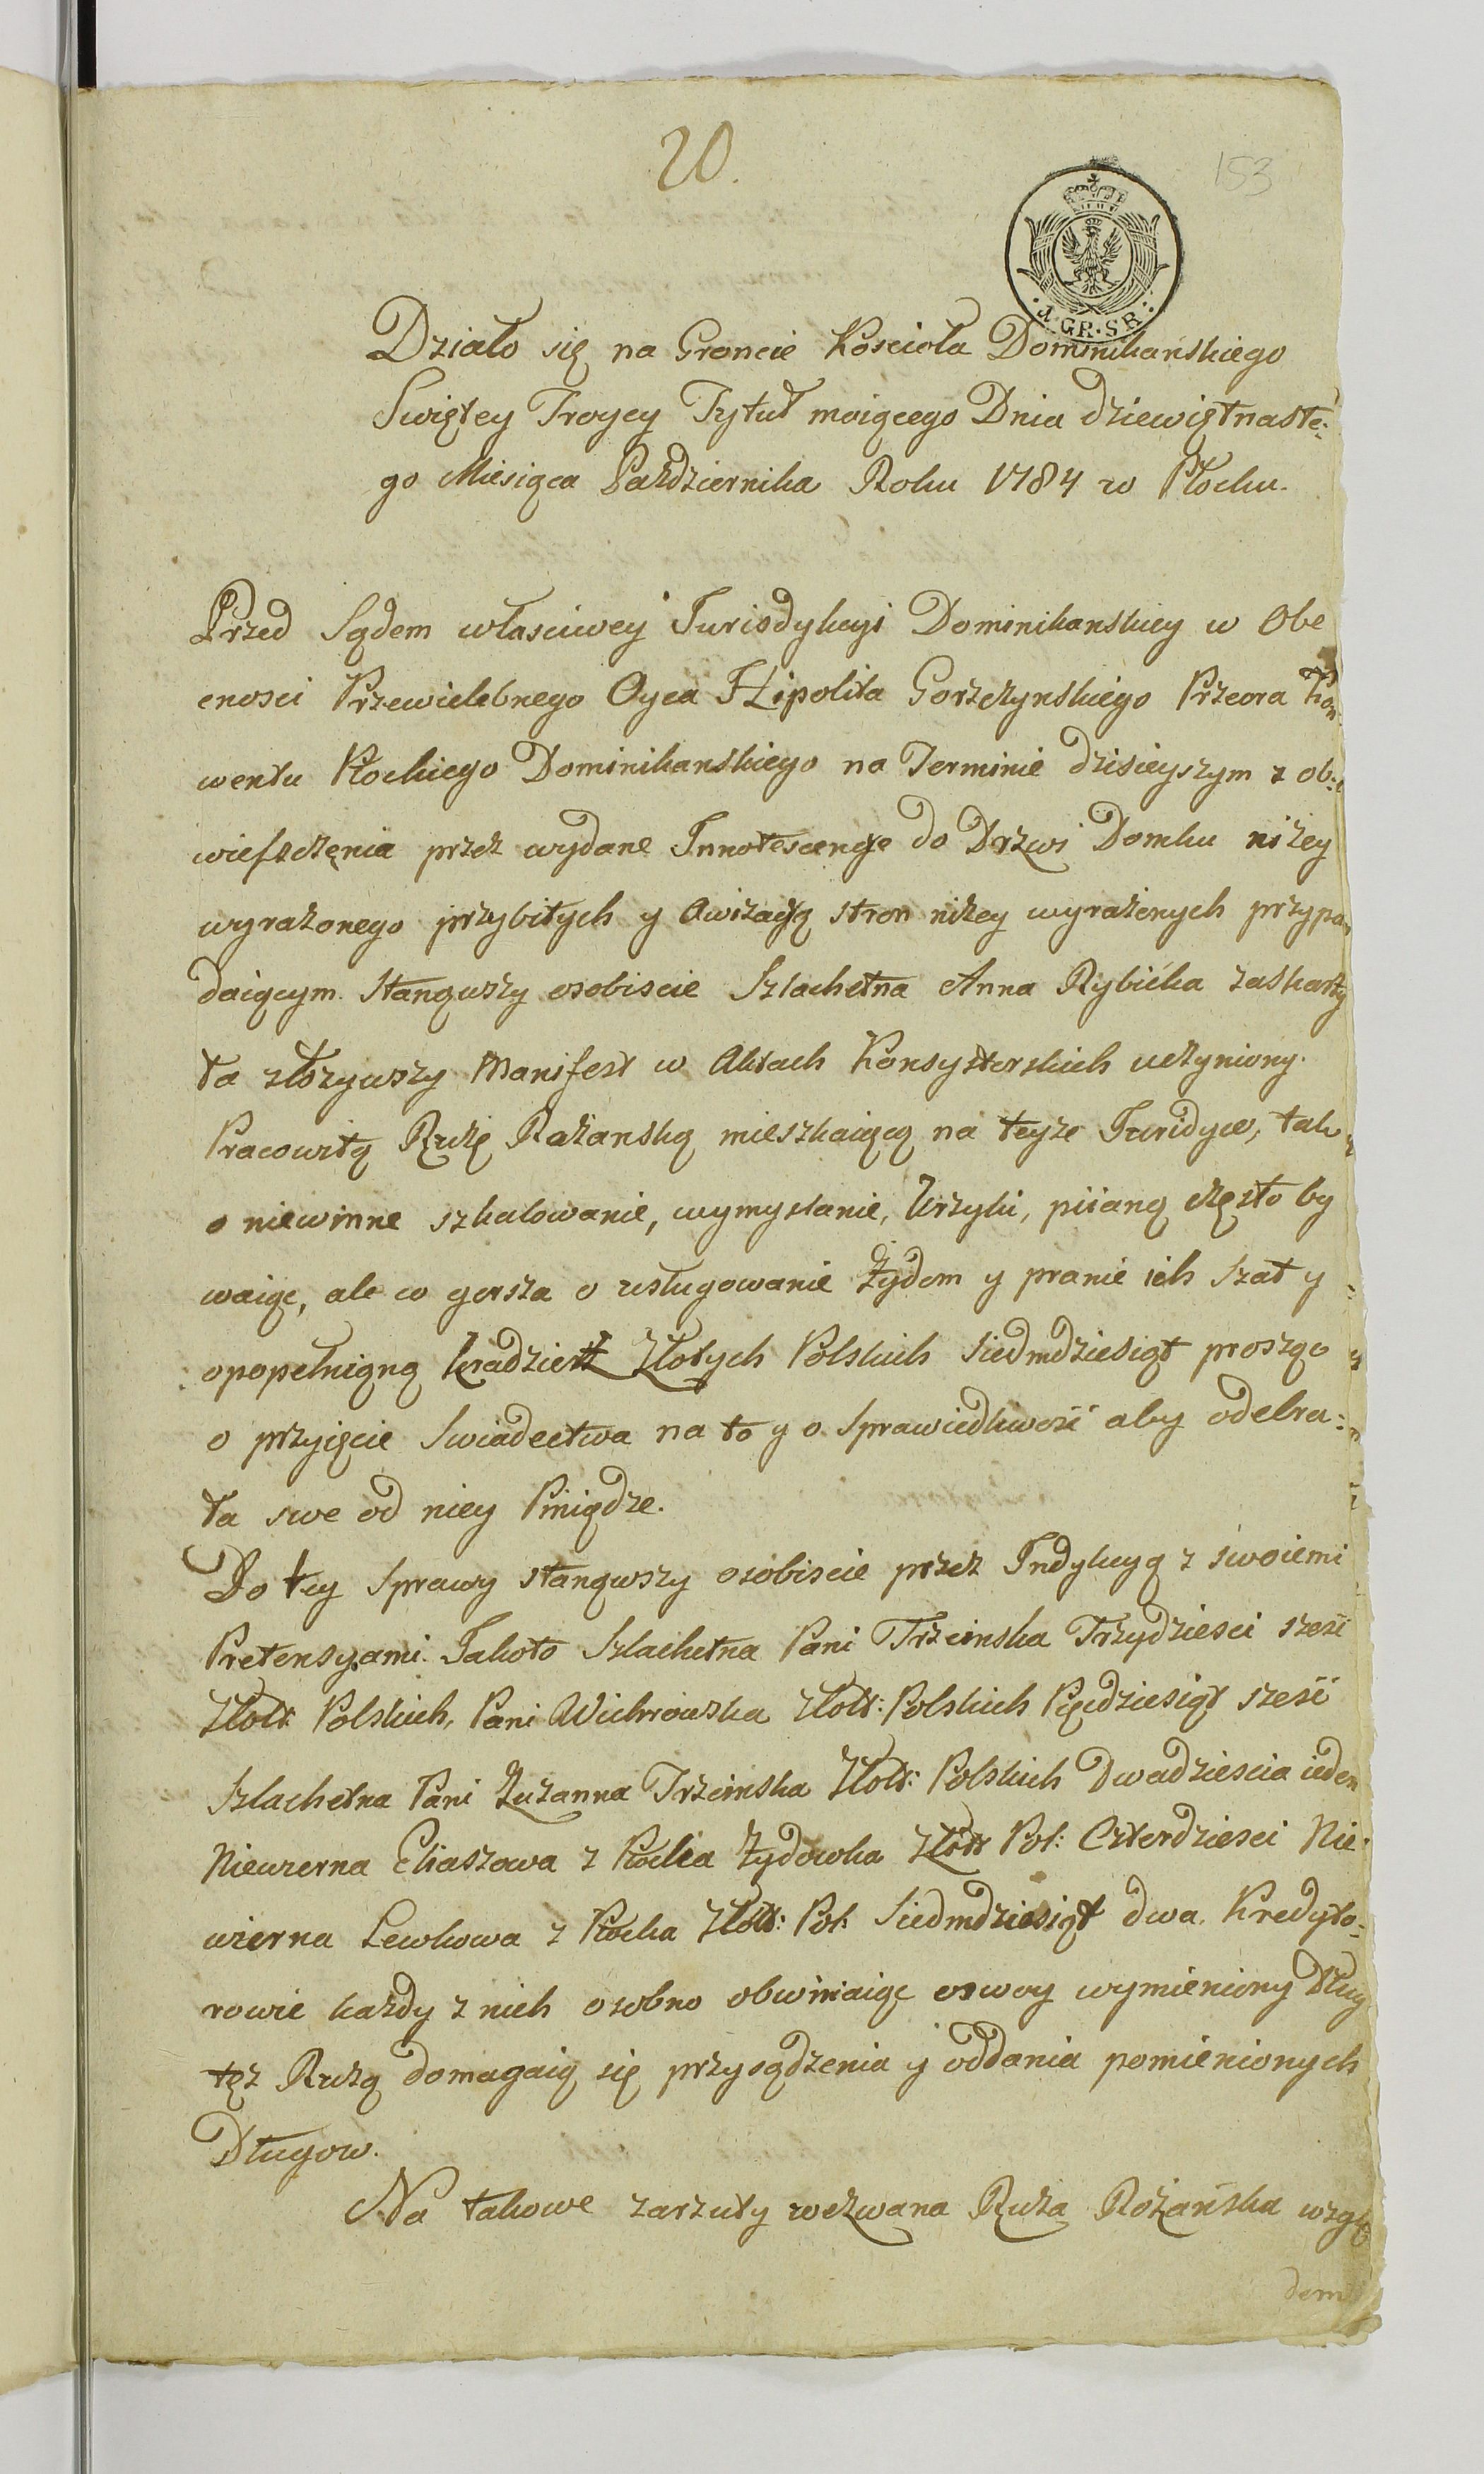 20.
153
1·GR·SR·
Działo się na Groncie Kościoła Dominikańskiego
Swiętey Troycy Tytuł maiącego Dnia dziewiętnaste:
go Miesiąca Października Roku 1784 w Płocku.
Przed Sądem właściwey Jurisdykcyi Dominikanskiey w Obe
cnosci Przewielebnego Oyca Hipolita Gorzczynskiego Przeora Kon
wentu Płockiego Dominikanskiego na Terminie dzisieyszym z ob:
wieszczęnia przez wydane Innotescencye do Drzwi Domku niżey
wyrażonego przybitych y Awizacyą stron niżey wyrażonych przypa
daiącym. Stanąwszy osobiscie Szlachetna Anna Rybicka zaskarży
ła złożywszy Manifest w Aktach Konsystorskich uczyniony.
Pracowitą Rużę Rażanską mieszkaiącą na teyże Jurydyce, tak
o niewinne szkalowanie, wymyslanie, krzyki, piianą często by
waiąc, ale co gorsza o usługowanie Żydom y pranie ich szat y
opopełnioną kradzież Złotych Polskich siedmdziesiąt prosząc
o przyięcie Swiadectwa na to y o Sprawiedliwość aby odebra:
ła swe od niey Piniądze.
Do tey Sprawy stanąwszy osobiscie przez Indykcyą z swoiemi
Pretensyami. Jakoto Szlachetna Pani Trzcinska Trzydziesci sześć
Złott Polskich, Pani Wichrowska Złott: Polskich Pięcdziesiąt sześć
Szlachetna Pani Zuzanna Trzcinska Złott: Polskich Dwadziescia ieden
Niewierna Eliaszowa z Płocka Żydowka Złott Pol: Czterdziesci Nie:
wierna Lewkowa z Płocka Złott: Pol: Siedmdziesiąt dwa. Kredyto:
rowie każdy z nich osobno obwiniaiąc oswoy wymieniony Dług
tęż Rużą domagaią się przysądzenia y oddania pomienionych
Długow.
Na takowe zarzuty wezwana Ruża Rożańska wzglę
dem